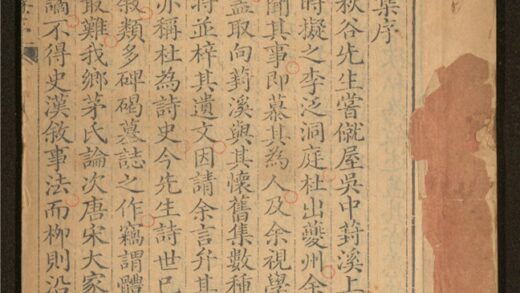 集序
秋谷先生嘗僦屋吳中葑溪上
時擬之李泛洞庭杜出夔州余
聞其事即慕其為人及余視學
盡取向葑溪與其懷舊集數種
將並梓其遺文因請余言弁其
亦稱杜為詩史今先生詩世已
敘類多碑碣墓誌之作竊謂體
最難我鄉茅氏論次唐宋大家
謫不得史漢敘事法而柳則沿